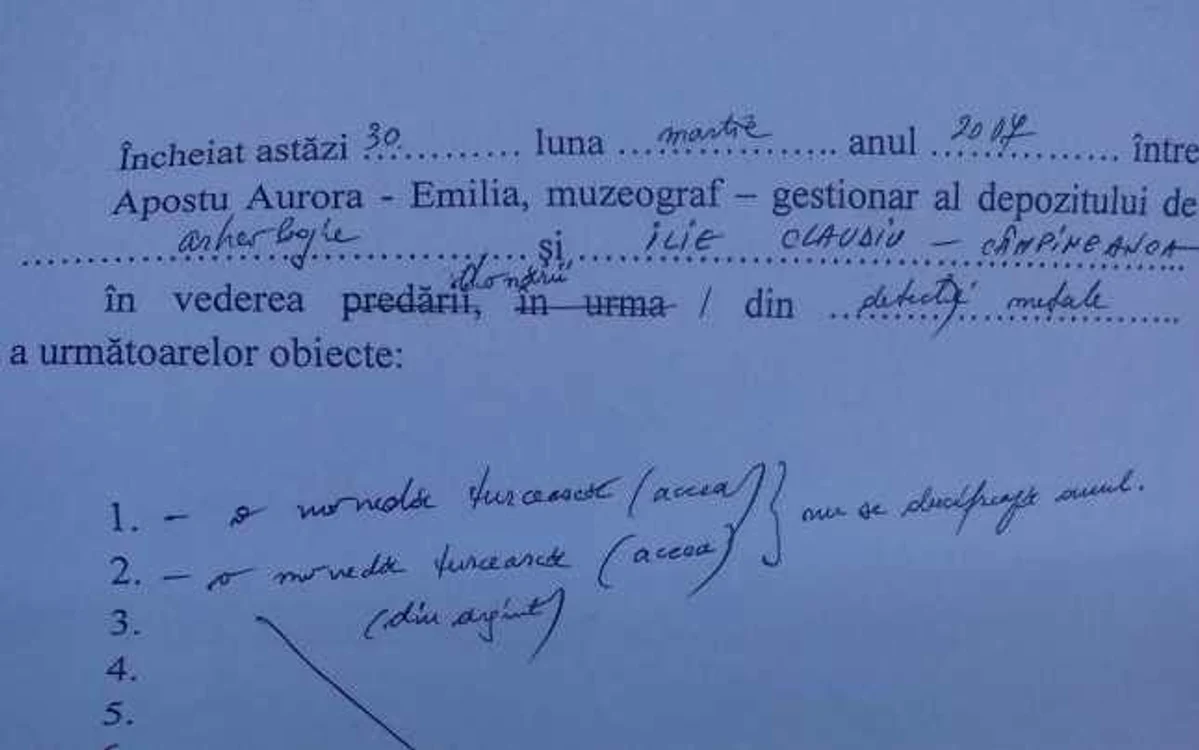 Încheiat astăzi 30 luna martie anul 2007 între
Apostu Aurora - Emilia, muzeograf – gestionar al depozitului de
arheologie și, ILIE CLAUDIU – CÂMPINEANCA
donării
în vederea predării, în urma / din detecții metale
a următoarelor obiecte:
1. – o monedă turcească (aceea)
nu se descifrează anul.
2. – o monedă turcească (aceea)
3. (din argint)
4.
5.